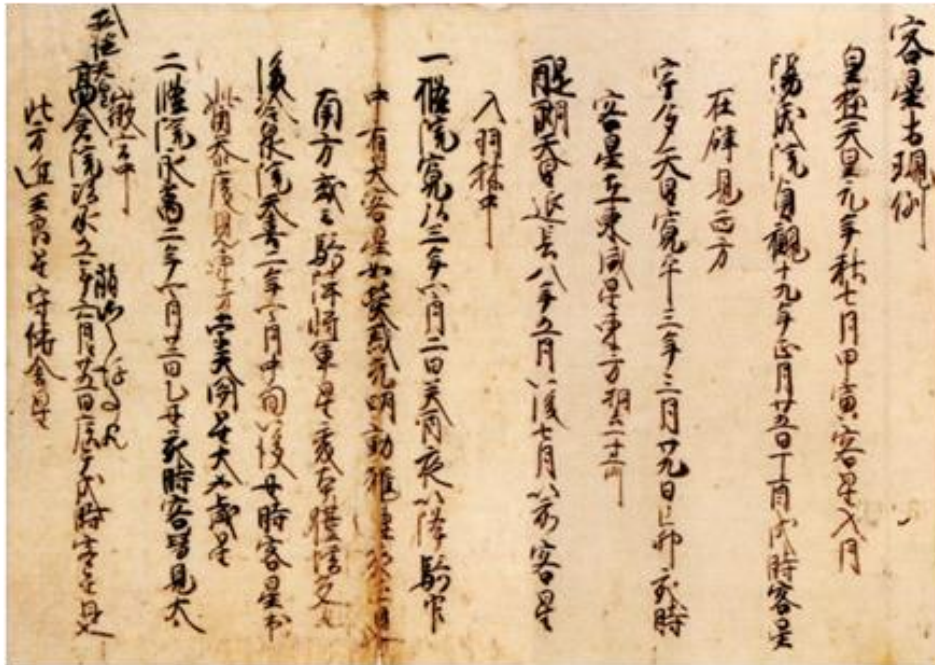 客星古現例
皇極天皇元年秋七月甲寅客星入月
陽成院貞観十九年正月廿五日丁酉戌時客星
在辟見西方
宇多天皇寛平三年三月廿九日己卯亥時
客星在東咸星東方相去一寸所
醍醐天皇延長八年五月以後七月以前客星
入羽林中
一條院寛弘三年四月二日癸酉夜以降騎官
中有大客星如熒惑光明動耀連夜正見
南方或云騎陣将軍星変本體増光
後冷泉院天喜二年四月中旬以後丑時客星出
觜参度見東方孛天関星大如歳星
二條院永萬二年四月廿二日乙丑亥時客星見大
微宮中
高倉院治承五年六月廿五日庚午戌時客星見
北方近王良星守傳舎星